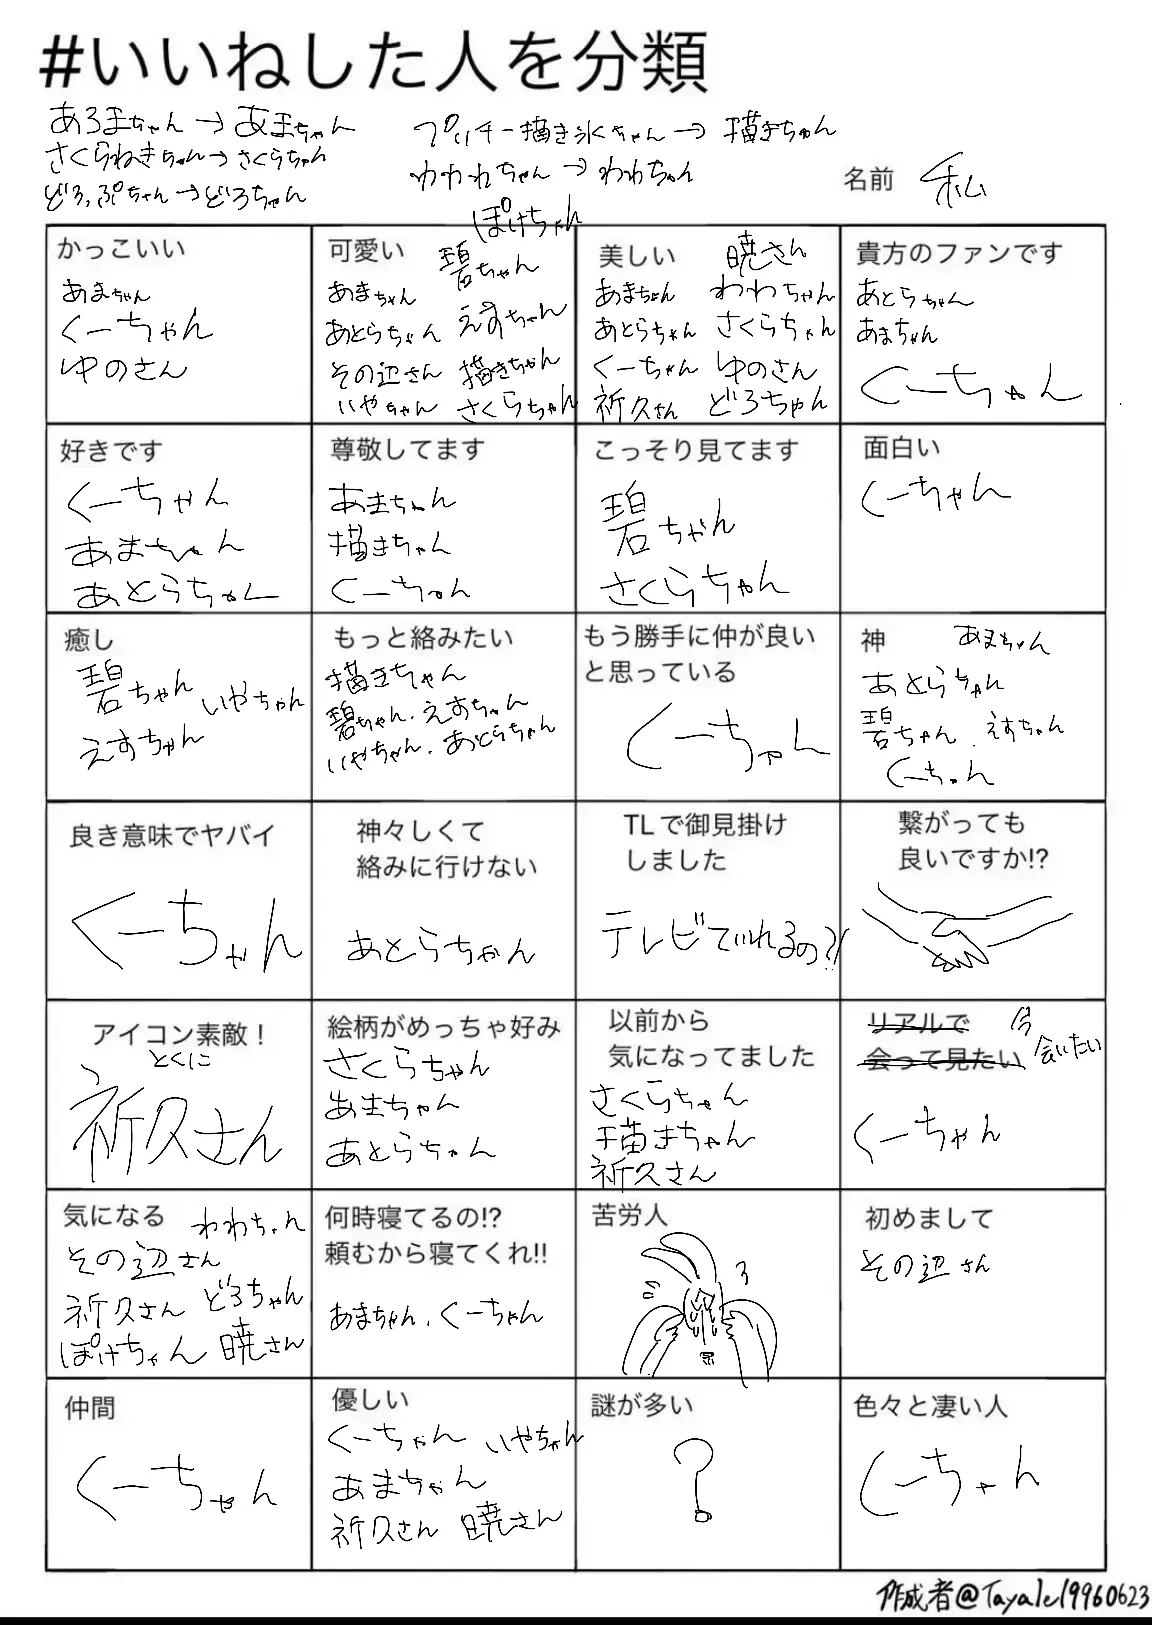 #いいねした人を分類
あろまちゃん→あまちゃん
さくらねきちゃん→さくらちゃん
どろっぷちゃん→どろちゃん
プッチー描き氷ちゃん→描きちゃん
わわわちゃん→わわちゃん
名前 私
かっこいい
あまちゃん
くーちゃん
ゆのさん
可愛い
ぽけちゃん
碧ちゃん
あまちゃん
あとらちゃん えすちゃん
その辺さん 描きちゃん
いやちゃん さくらちゃん
美しい 暁さん
あまちゃん わわちゃん
あとらちゃん さくらちゃん
くーちゃん ゆのさん
祈久さん どろちゃん
貴方のファンです
あとらちゃん
あまちゃん
くーちゃん
好きです
くーちゃん
あまちゃん
あとらちゃん
尊敬してます
あまちゃん
描きちゃん
くーちゃん
こっそり見てます
碧ちゃん
さくらちゃん
面白い
くーちゃん
癒し
碧ちゃん いやちゃん
えすちゃん
もっと絡みたい
描きちゃん
碧ちゃん.えすちゃん
いやちゃん.あとらちゃん
もう勝手に仲が良い
と思っている
くーちゃん
神 あまちゃん
あとらちゃん
碧ちゃん.えすちゃん
くーちゃん
良き意味でヤバイ
くーちゃん
神々しくて
絡みに行けない
あとらちゃん
TLで御見掛け
しました
テレビでれるの?!
繋がっても
良いですか!?
アイコン素敵!
とくに
祈久さん
絵柄がめっちゃ好み
さくらちゃん
あまちゃん
あとらちゃん
以前から
気になってました
さくらちゃん
描きちゃん
祈久さん
リアルで
会って見たい
今
会いたい
くーちゃん
気になる わわちゃん
その辺さん
祈久さん どろちゃん
ぽけちゃん 暁さん
何時寝てるの!?
頼むから寝てくれ!!
あまちゃん.くーちゃん
苦労人
初めまして
その辺さん
仲間
くーちゃん
優しい
くーちゃん いやちゃん
あまちゃん
祈久さん 暁さん
謎が多い
?
色々と凄い人
くーちゃん
作成者@Tayale19960623